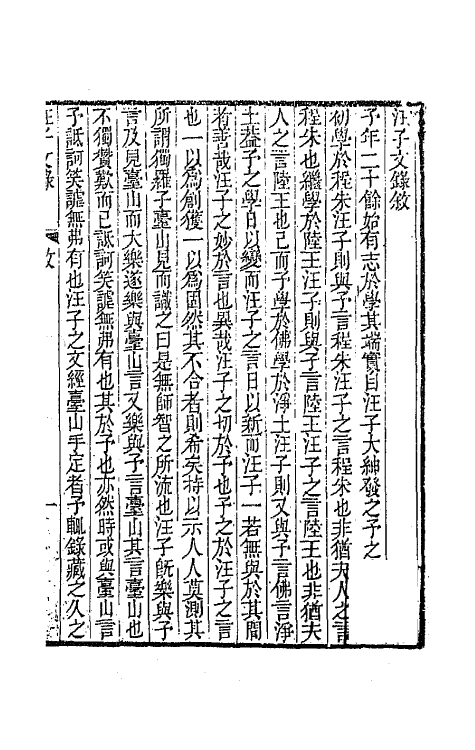 汪子文錄敘
予年二十餘始有志於學其端實自汪子大紳發之予之
初學於程朱汪子則與予言程朱汪子之言程朱也非猶夫人之言
程朱也繼學於陸王汪子則與予言陸王汪子之言陸王也非猶夫
人之言陸王也已而予學於佛學於淨土汪子則又與予言佛言淨
土葢予之學日以變而汪子之言日以新而汪子一若無與於其間
者善哉汪子之妙於言也異哉汪子之切於予也予之於汪子之言
也一以為創獲一以為固然其不合者則希矣持以示人人莫測其
所謂獨羅子臺山見而識之曰是無師智之所流也汪子旣樂與予
言及見臺山而大樂遂樂與臺山言又樂與予言臺山其言臺山也
不獨贊歎而已詆訶笑謔無弗有也其於予也亦然時或與臺山言
予詆訶笑謔無弗有也汪子之文經臺山手定者予輒錄藏之久之
汪子文錄 敘 一